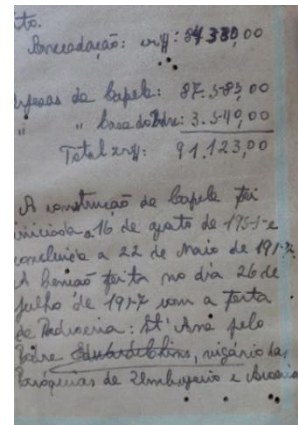 to.
Arrecadação: cr$: 84.380,00
Despesas da Capela: 87.583,00
" " Casa do Pdre: 3.540,00
Total cr$: 91.123,00
A construção da Capela foi
iniciada a 16 de agosto de 1955 e
concluida a 22 de Maio de 1957.
A benção feita no dia 26 de
julho de 1957 com a festa
da Padroeira: St' Ana pelo
Padre vigário das
Paróquias de Umbuzeiro e